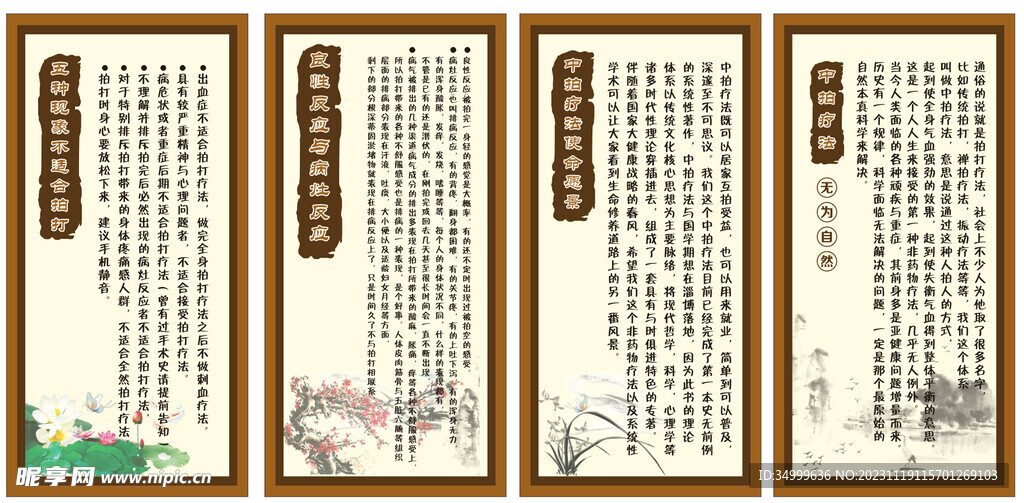 五种现象不适合拍打
●出血症不适合拍打疗法，做完全身拍打疗法之后不做刺血疗法，
●具有较严重精神与心理问题者，不适合接受拍打疗法。
●病危状或者重症后期不适合拍打疗法（曾有过手术史请提前告知）
●不理解并排斥拍完后必然出现的病灶反应者不适合拍打疗法，
●对于特别排斥拍打带来的身体疼痛感人群，不适合全然拍打疗法
●拍打时身心要放松下来，建议手机静音。
良性反应与病灶反应
●良性反应被拍完一身轻的感觉是大概率，有的还不定时出现过被拍空的感受，
●病灶反应也叫排病反应，有的背疼，翻身都困难，有的关节疼，有的上吐下泻，有的浑身无力，
有的浑身酸胀，发痒，发烧，嗜睡等等，每个人的身体状况不同，什么样的表现都有，
不管是已有的还是潜伏的，在刚拍完或回去几天甚至很长时间会一直不断出现
●病气被排出的几种渠道病气成分的排出多表现在拍打所带来的酸麻，胀痛，痒等各种不舒服感受上，
所以拍打带来的各种不舒服感受也是排病的一种表现，是个好事，人体皮肉筋骨与五脏六腑等组织
层面的排病部分表现在汗液，吐痰，大小便以及适龄妇女月经等方面，
剩下的部分根深蒂固淤堵物就表现在排病反应上了，只是时间久了不与拍打相联系
中拍疗法使命愿景
中拍疗法既可以居家互拍受益，也可以用来就业，简单到可以普及，
深邃至不可思议。我们这个中拍疗法目前已经完成了第一本史无前例
的系统性著作，中拍疗法与国学期想在淄博落地，因为此书的理论
体系以传统文化核心思想为主要脉络，将现代哲学，科学，心理学等
诸多时代性理论穿插进去，组成了一套具有与时俱进特色的专著。
伴随着国家大健康战略的春风，希望我们这个非药物疗法以及系统性
学术可以让大家看到生命修养道路上的另一番风景。
中拍疗法
无为自然
通俗的说就是拍打疗法，社会上不少人为他取了很多名字，
比如传统拍打，禅拍疗法，振动疗法等等，我们这个体系
叫做中拍疗法，意思是说通过这种人拍人的方式，
起到使全身气血强劲的效果，起到使失衡气血得到整体平衡的意思。
这是一个人人生来接受的第一种非药物疗法，几乎无人例外，
当今人类面临的各种顽疾与重症，其前身多是亚健康问题增量而来，
历史有一个规律，科学面临无法解决的问题，一定是那个最原始的
自然本真科学来解决。
昵享网 www.nipic.cn
ID:34999636 NO:20231119115701269103